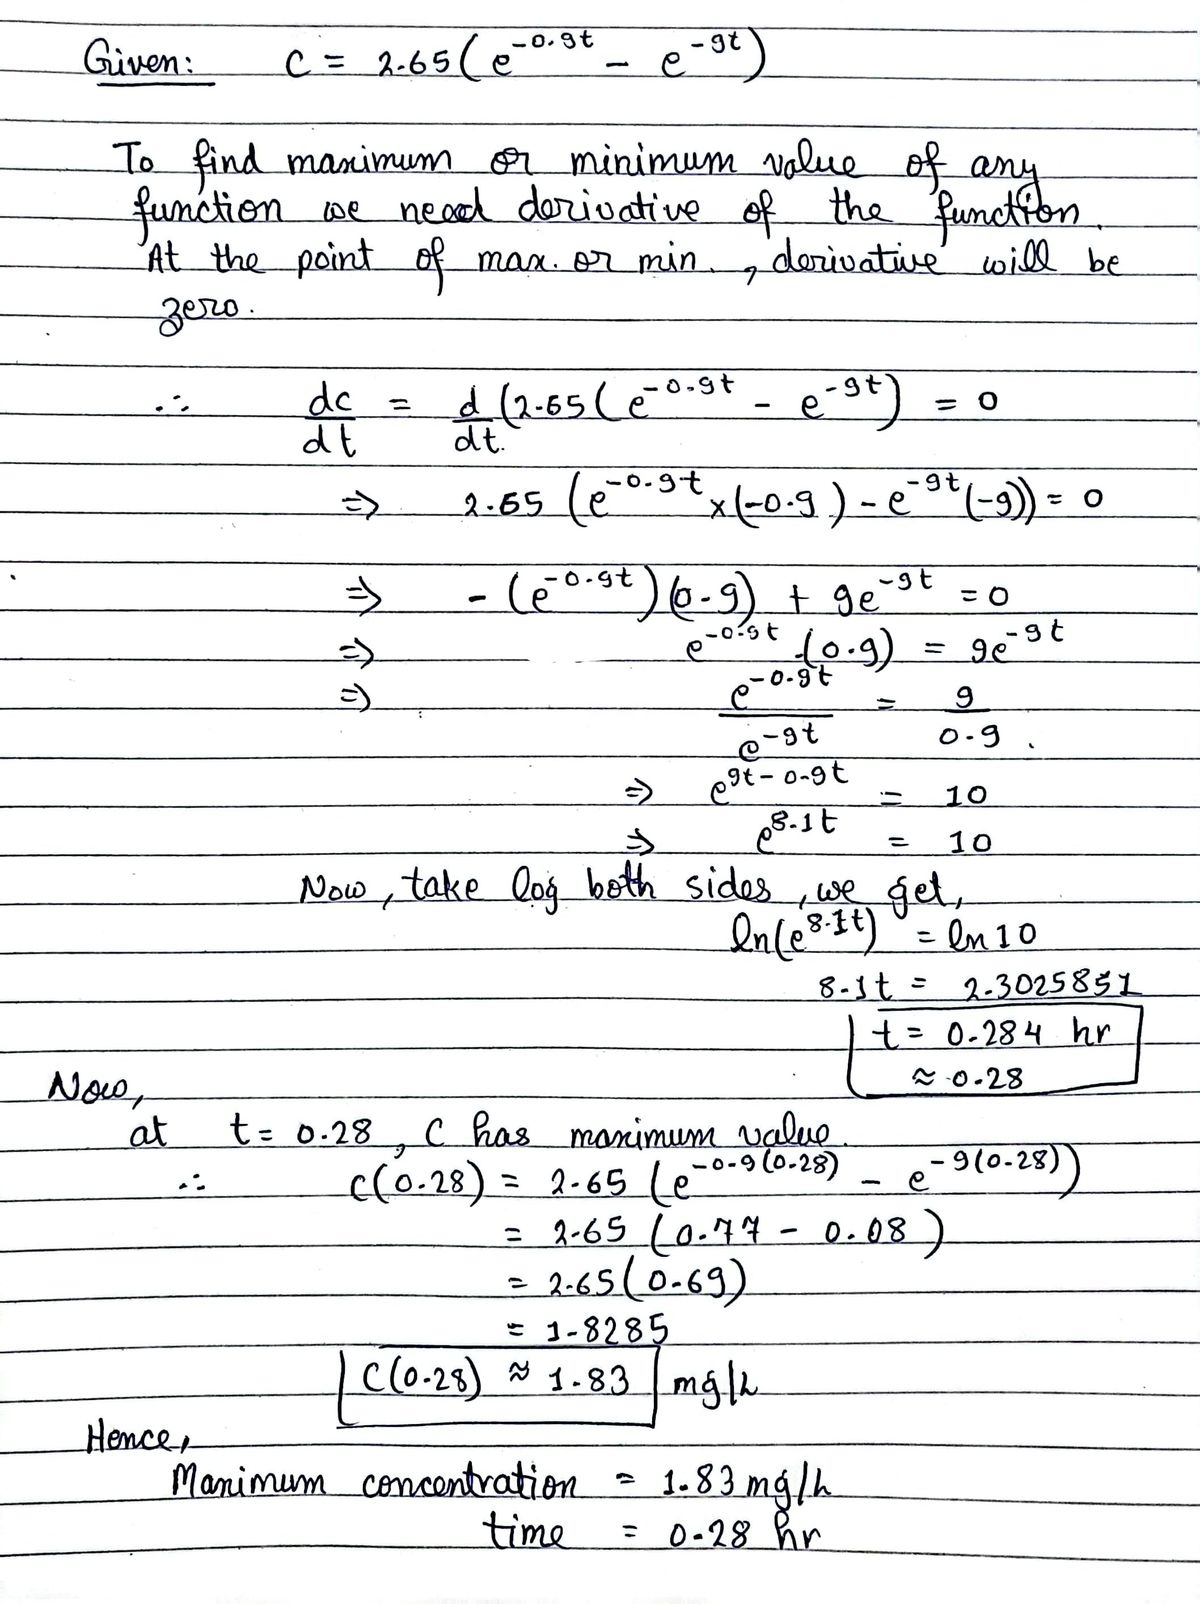 Given: C = 2.65(e^-0.9t − e^-9t)
To find maximum or minimum value of any
function we need derivative of the function.
At the point of max. or min., derivative will be
zero.
∴ dc/dt = d/dt. (2.65(e^-0.9t - e^-9t) = 0
=> 2.65 (e^-0.9t × (-0.9) - e^-9t (-9)) = 0
=> - (e^-0.9t)(0.9) + 9e^-9t = 0
=> e^-0.9t (0.9) = 9e^-9t
=> e^-0.9t / e^-9t = 9 / 0.9.
=> e^9t - 0.9t = 10
=> e^8.1t = 10
Now, take log both sides, we get,
ln(e^8.1t) = ln 10
8.1t = 2.3025851
t = 0.284 hr
≈ 0.28
Now,
at t = 0.28, C has maximum value.
∴ C(0.28) = 2.65 (e^-0.9(0.28) − e^-9(0.28))
= 2.65 (0.77 - 0.08)
= 2.65(0.69)
= 1.8285
C(0.28) ≈ 1.83 mg/h
Hence,
Maximum concentration = 1.83 mg/h
time = 0.28 hr